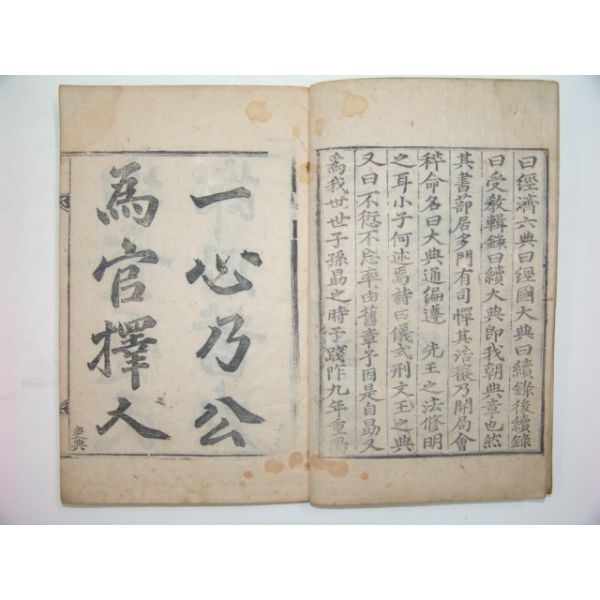 曰經濟六典曰經國大典曰續錄後續錄
曰受敎輯錄曰續大典卽我朝典章也然
其書莭居多門有司憚其浩穰乃開局會
稡命名曰大典通編遵 先王之法修明
之耳小子何述焉詩曰儀式刑文王之典
又曰不愆不忘率由舊章予因是自勗又
爲我世世子孫勗之時予踐阼九年重陽
一心乃公
為官擇人
吏典